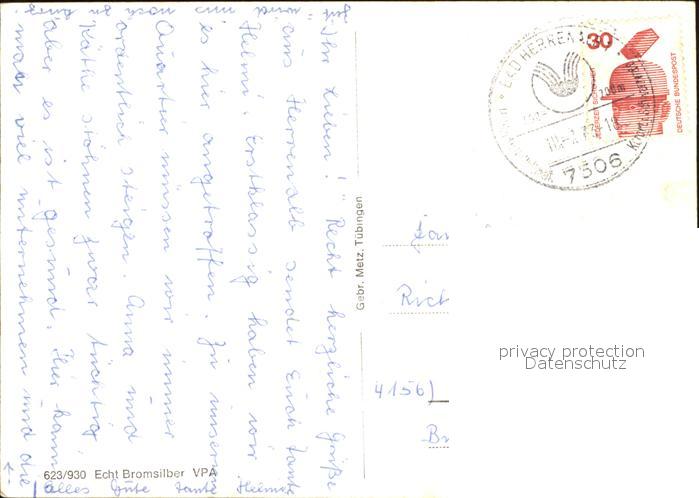 Ihr Lieben! Recht herzliche Grüße
aus Herrenalb sendet Euch Tante
Helmi. Erstklassig haben wir
es hier angetroffen. Zu unserem
Quartier müssen wir immer
ordentlich steigen. Anna und
Käthe stöhnen zwar tüchtig
aber es ist gesund. Hier kann
man viel unternehmen und die
alles Gute Tante Helmi
623/930 Echt Bromsilber VPA
Gebr. Metz, Tübingen
30
JEDERZEIT SICHERHEIT
DEUTSCHE BUNDESPOST
BAD HERRENALB
7506
4156)
privacy protection
Datenschutz